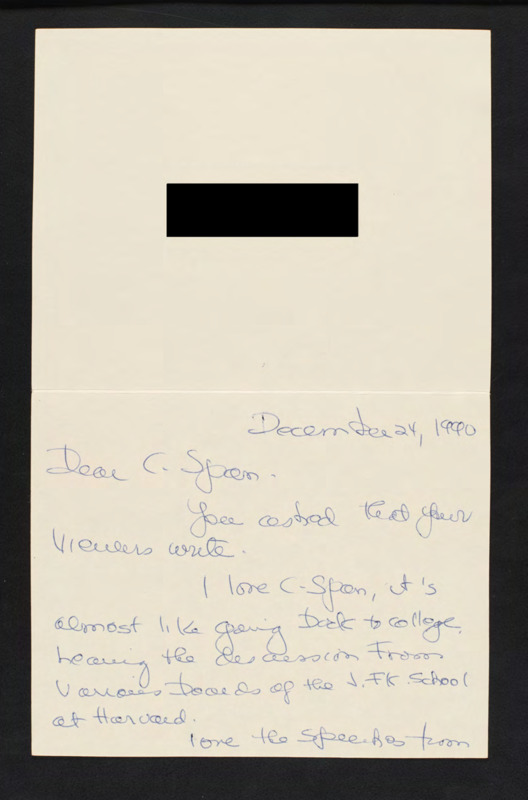 December 24, 1990
Dear C-Span.
You asked that your
Viewers write.
I love C-Span, it's
almost like going back to college.
hearing the discussion from
Various boards of the J.FK. School
at Harvard.
love the speeches from